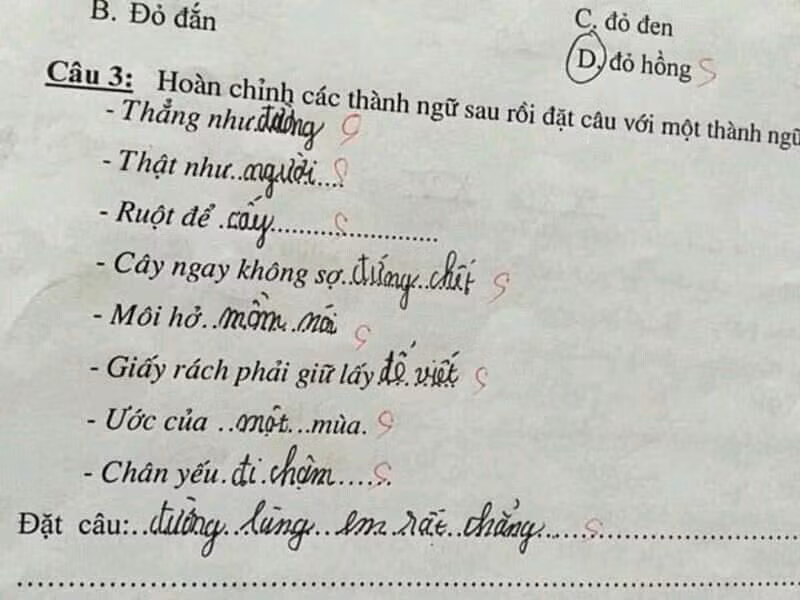 B. Đỏ đắn
C. đỏ đen
D. đỏ hồng S
Câu 3: Hoàn chỉnh các thành ngữ sau rồi đặt câu với một thành ngữ
- Thẳng như đường S
- Thật như..người.... S
- Ruột để .cấy........................ S
- Cây ngay không sợ..đứng..chết S
- Môi hở..mồm..nói S
- Giấy rách phải giữ lấy để.viết S
- Ước của ..một...mùa. S
- Chân yếu.đi.chậm...... S
Đặt câu:..đường..làng...em..rất..thẳng.............................. S